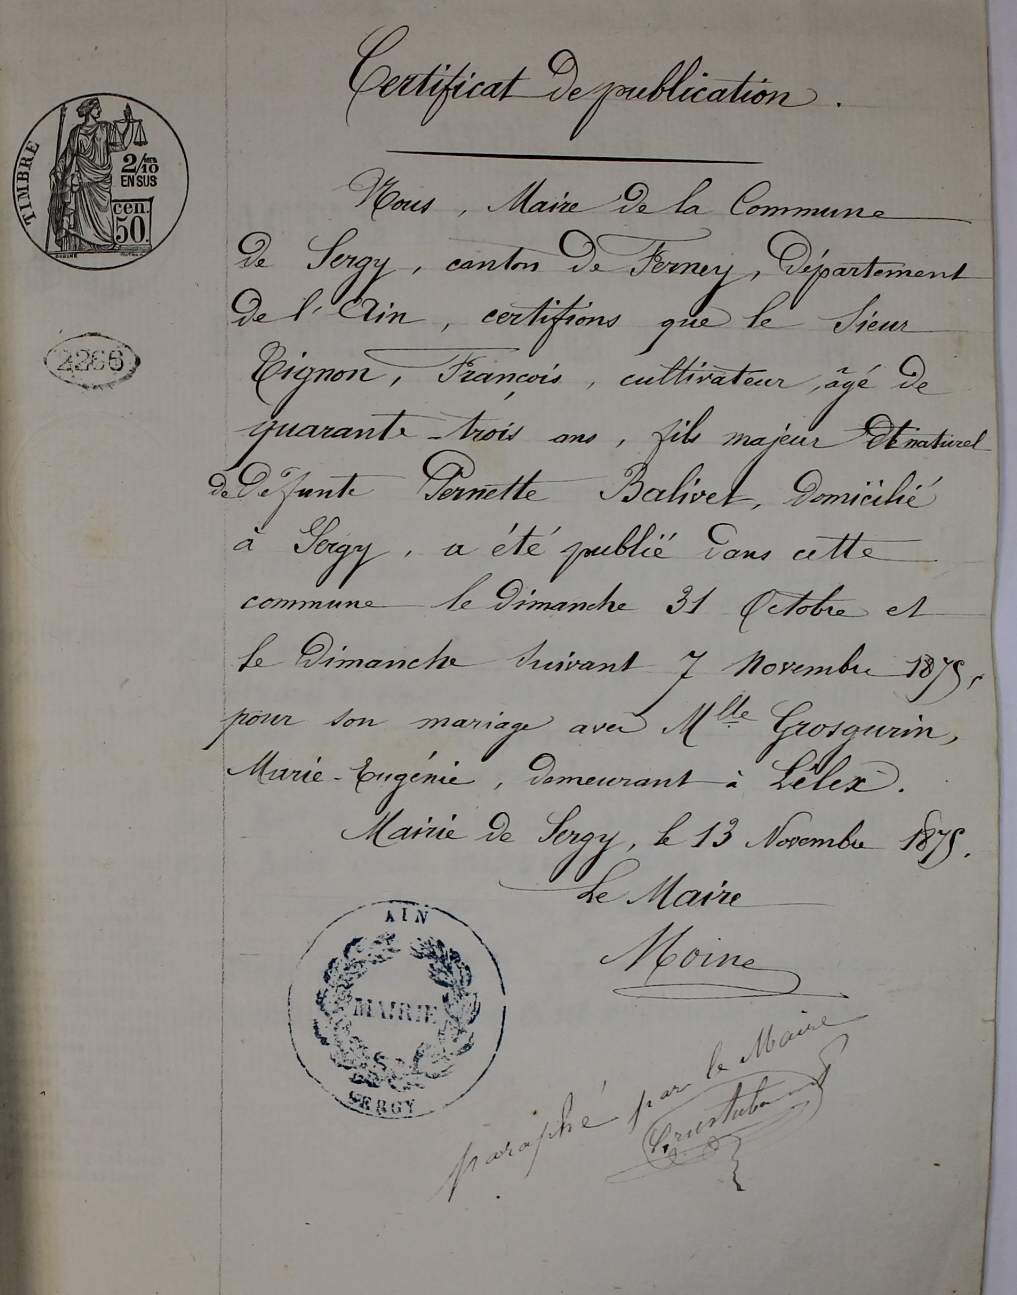 Certificat de publication.
TIMBRE
2/10 EN SUS
cen. 50
2266
Nous, Maire de la Commune
de Sergy, canton de Ferney, Département
de l'Ain, certifions que le Sieur
François, cultivateur, âgé de
quarante-trois ans, fils majeur et naturel
de défunte Pernette Balivet, domicilié
à Sergy, a été publié dans cette
commune le dimanche 31 Octobre et
le Dimanche suivant 7 Novembre 1875,
pour son mariage avec Mlle Grosgurin,
Marie-Eugénie, demeurant à Lélex.
Mairie de Sergy, le 13 Novembre 1875.
Le Maire
Moine
AIN
MAIRIE
SERGY
paraphé par le Maire